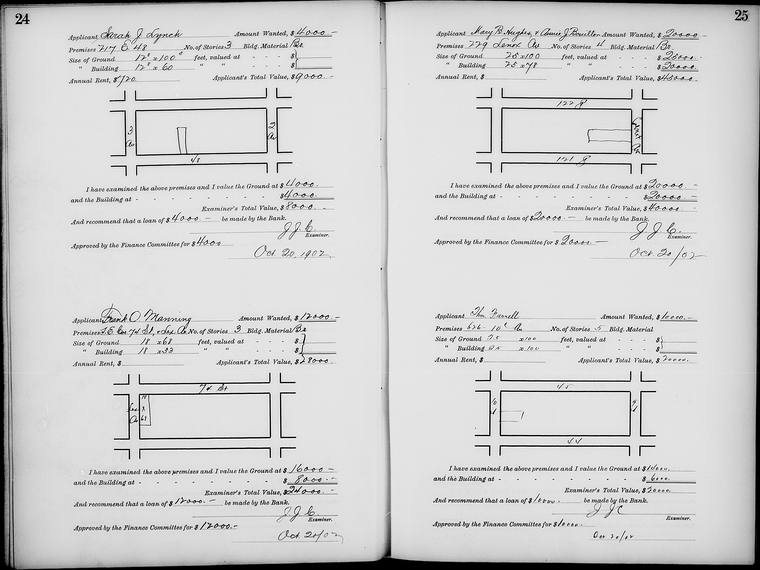 24
Applicant Sarah J Lynch Amount Wanted, $ 4000 -
Premises 217 E 48 No. of Stories 3 Bldg. Material Br
Size of Ground 12⁸ x 100 feet, valued at - - - $
" Building 12⁸ x 60 " " - - - $
Annual Rent, $ 720 Applicant's Total Value, $ 9000 -
3 Av
2 Av
48
I have examined the above premises and I value the Ground at $ 4000.
and the Building at - - - - - - - - $ 4000.
Examiner's Total Value, $ 8000 -
And recommend that a loan of $ 4000 - be made by the Bank.
J. J. C.
Examiner.
Approved by the Finance Committee for $ 4000
Oct 20, 1902
Applicant Frank O Manning Amount Wanted, $ 12000 -
Premises Cor 74 St, & Lex Av No. of Stories 3 Bldg. Material Br
Size of Ground 18 x 68 feet, valued at - - - $
" Building 18 x 33 " " - - - $
Annual Rent, $ Applicant's Total Value, $ 28000 -
74 St
Lex Av
18 x 68
I have examined the above premises and I value the Ground at $ 16000 -
and the Building at - - - - - - - - $ 8000 -
Examiner's Total Value, $ 24000 -
And recommend that a loan of $ 12000 - be made by the Bank.
J. J. C.
Examiner.
Approved by the Finance Committee for $ 12000. -
Oct. 20/02
25
Applicant Mary B. Hughes, & Annie J Amount Wanted, $ 20000 -
Premises 229 Lenox Av No. of Stories 4 Bldg. Material Br.
Size of Ground 25 x 100 feet, valued at - - - $ 25000 -
" Building 25 x 78 " " - - - $ 20000.
Annual Rent, $ Applicant's Total Value, $ 45000 -
122 St
Lenox Av
121 St
I have examined the above premises and I value the Ground at $ 20000 -
and the Building at - - - - - - - - $ 20000 -
Examiner's Total Value, $ 40000 -
And recommend that a loan of $ 20000 - be made by the Bank.
J. J. C.
Examiner.
Approved by the Finance Committee for $ 20000 -
Oct. 20/02
Applicant Thos Farrell Amount Wanted, $ 10000. -
Premises 626 - 10th Av No. of Stories 5 Bldg. Material
Size of Ground 25 x 100 feet, valued at - - - $
" Building 25 x 100 " " - - - $
Annual Rent, $ Applicant's Total Value, $ 20000.
45
10
9
44
I have examined the above premises and I value the Ground at $ 14000.
and the Building at - - - - - - - - $ 6000.
Examiner's Total Value, $ 20000.
And recommend that a loan of $ 10000. - be made by the Bank.
J. J C
Examiner.
Approved by the Finance Committee for $ 10000.
Oct 20/02